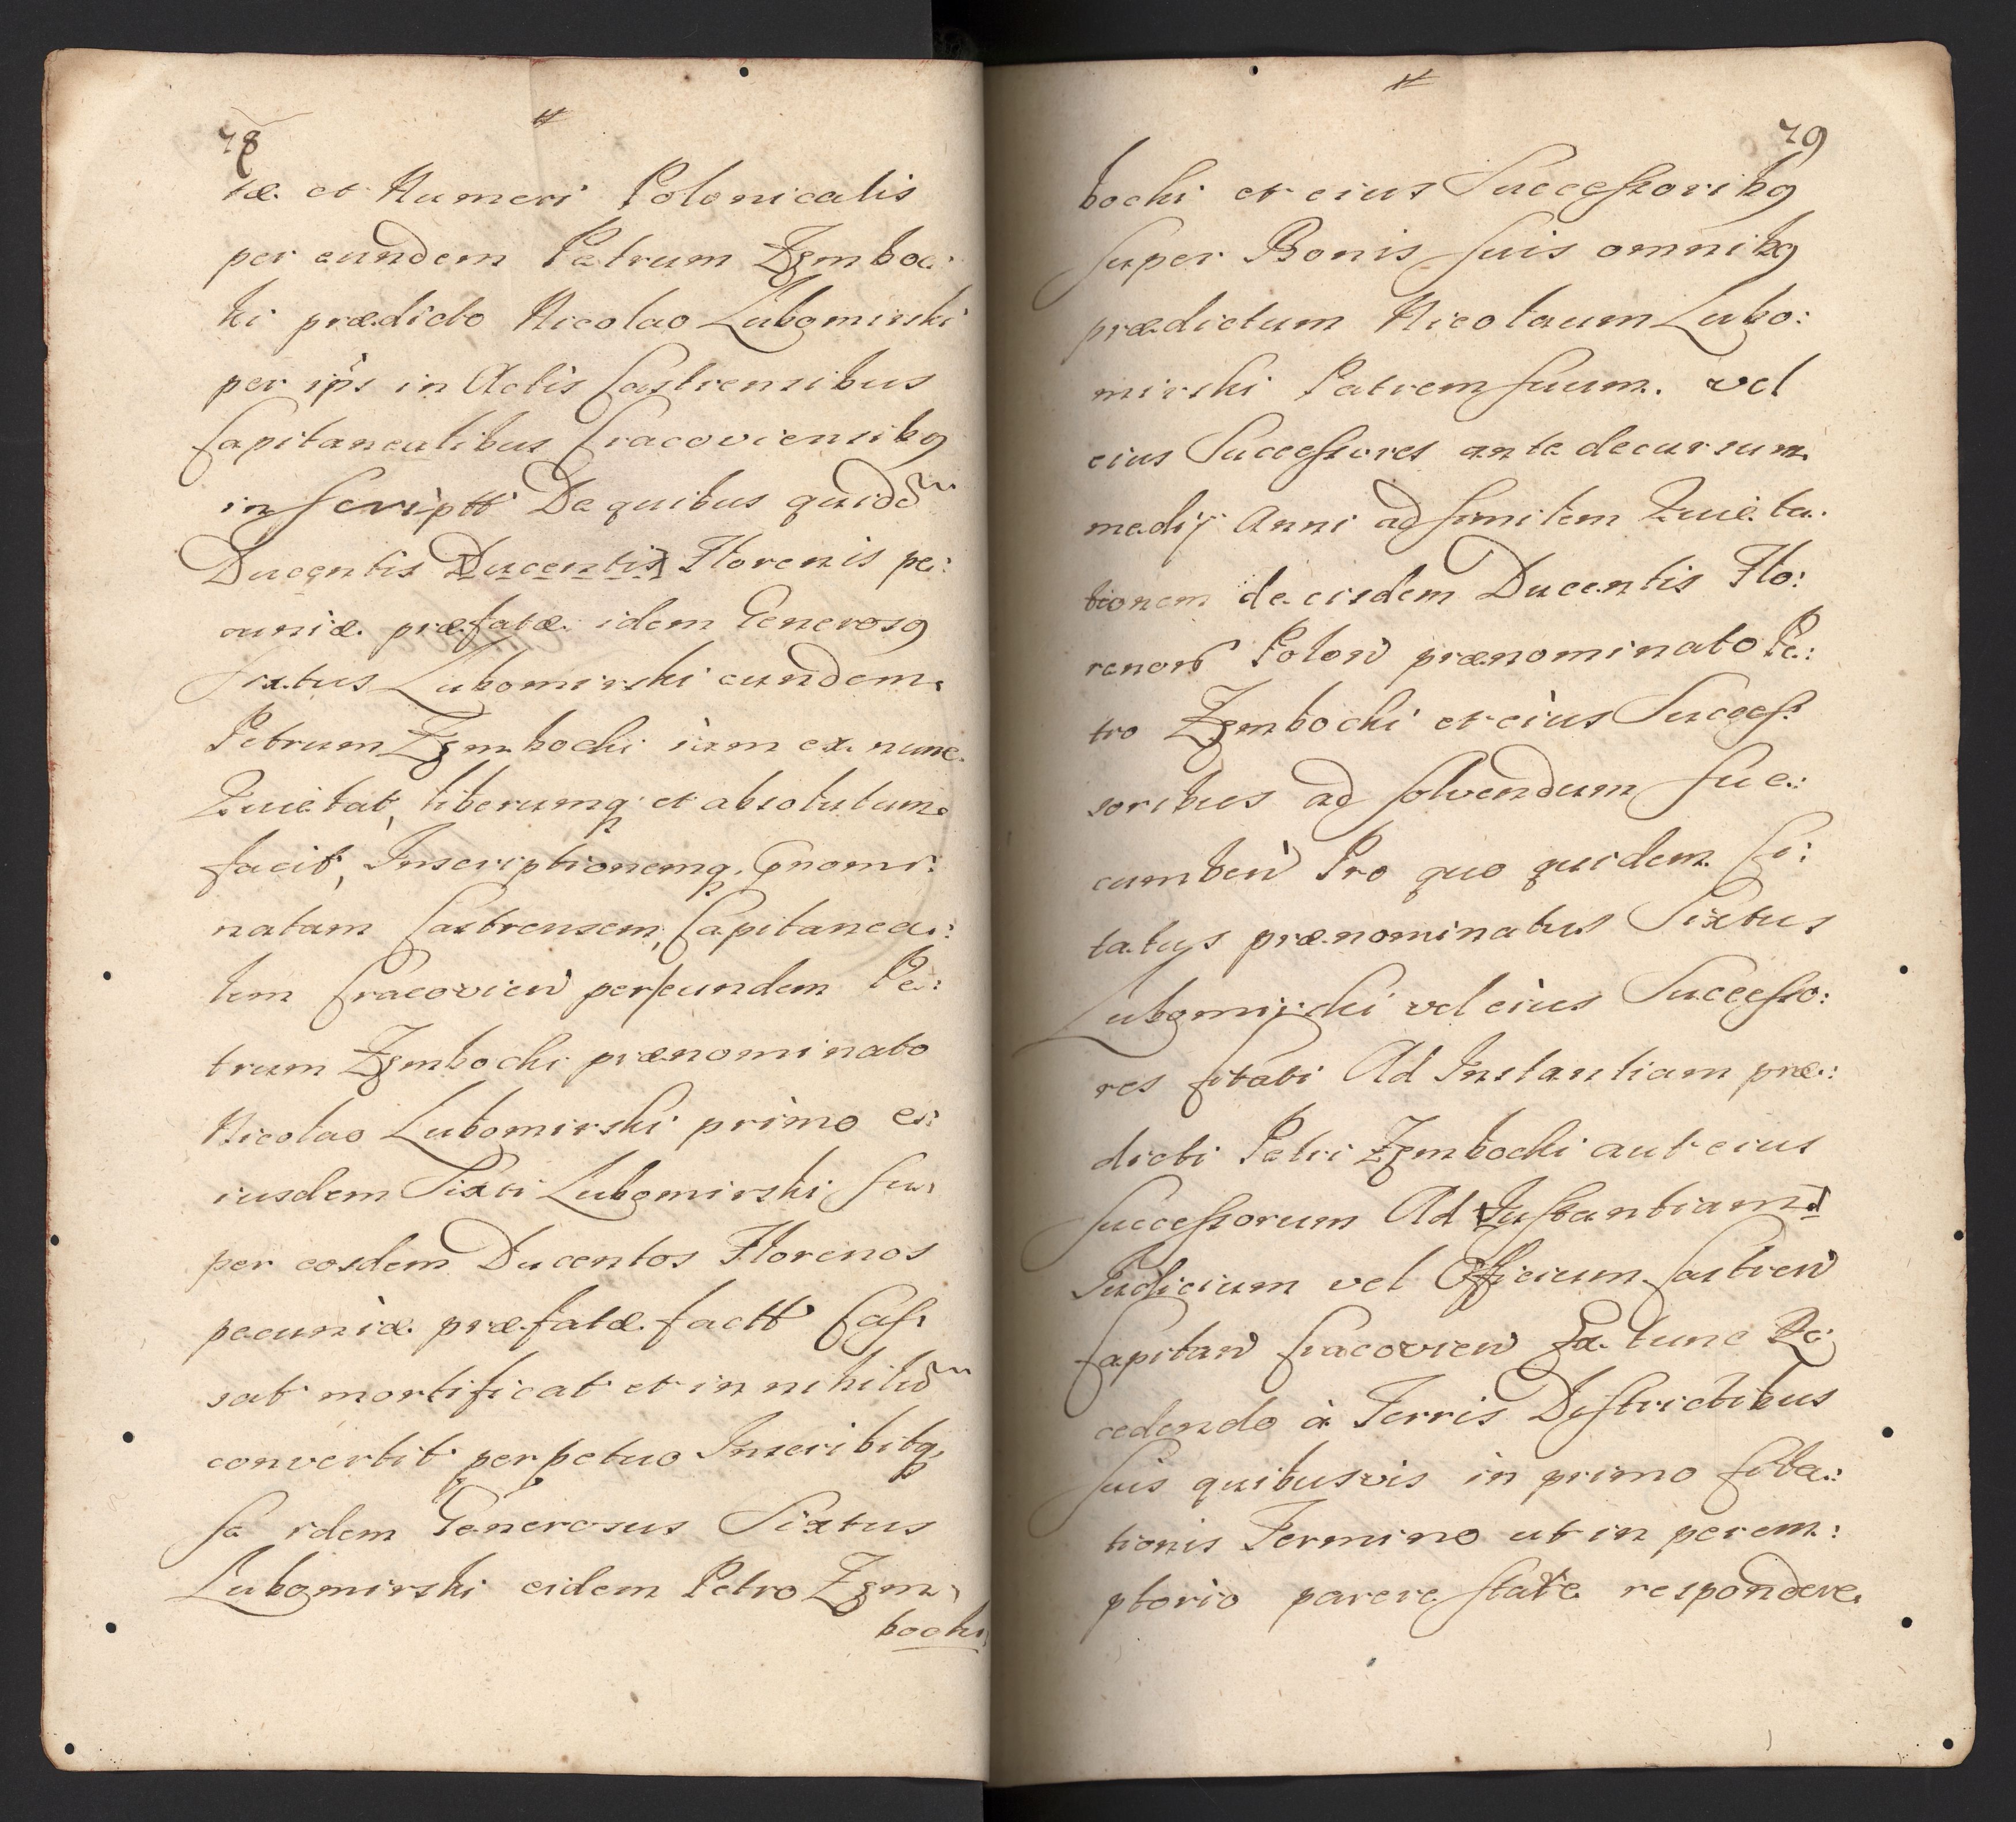 78
tæ et Numeri Polonicalis
per eundem Petrum Zęmboc:
ki prædicto Nicolao Lubomirski
per ips in Actis Castrensibus
Capitanealibus Cracoviensibq
in scriptt De quibus quidē
Ducentis Ducentis Florenis pe:
cuniæ præfatæ idem Generosq
Sixtus Lubomirski eundem
Petrum Zęmbocki iam ex nunc
Quietat, liberumq et absolutum
facit, Inscriptionemq. Pnomi:
natam Castrensem, Capitanea:
lem Cracovien per eundem Pe:
trum Zęmbocki prænominato
Nicolao Lubomirski primo e:
iusdem Sixti Lubomirski su:
per eosdem Ducentos Florenos
pecuniæ præfatæ factt Cas:
sat mortificat et in nihilū
convertit perpetuo Inscribitq
se idem Generosus Sixtus
Lubomirski eidem Petro Zęm:
bocki
79
bocki et eius Successoribq
super Bonis suis omnibq
prædictum Nicolaum Lubo:
mirski Patrem suum. vel
eius Successores ante decursum
medij Anni ad similem Quieta:
tionem de eisdem Ducentis Flo:
renor Polon prænominato Pe:
tro Zęmbocki et eius Succes:
soribus ad solvendum suc:
cumben Pro quo quidem Ci:
tatus prænominatus Sixtus
Lubomirski vel eius Successo:
res Citati Ad Instantiam præ:
dicti Petri Zęmbocki aut eius
successorum Ad Instantiam
Judicium vel Officium Castren
Capitan Cracovien Ex tunc Re:
cedendo à Terris Districtibus
suis quibusvis in primo Cita:
tionis Termino ut in perem:
ptorio parere stare respondere